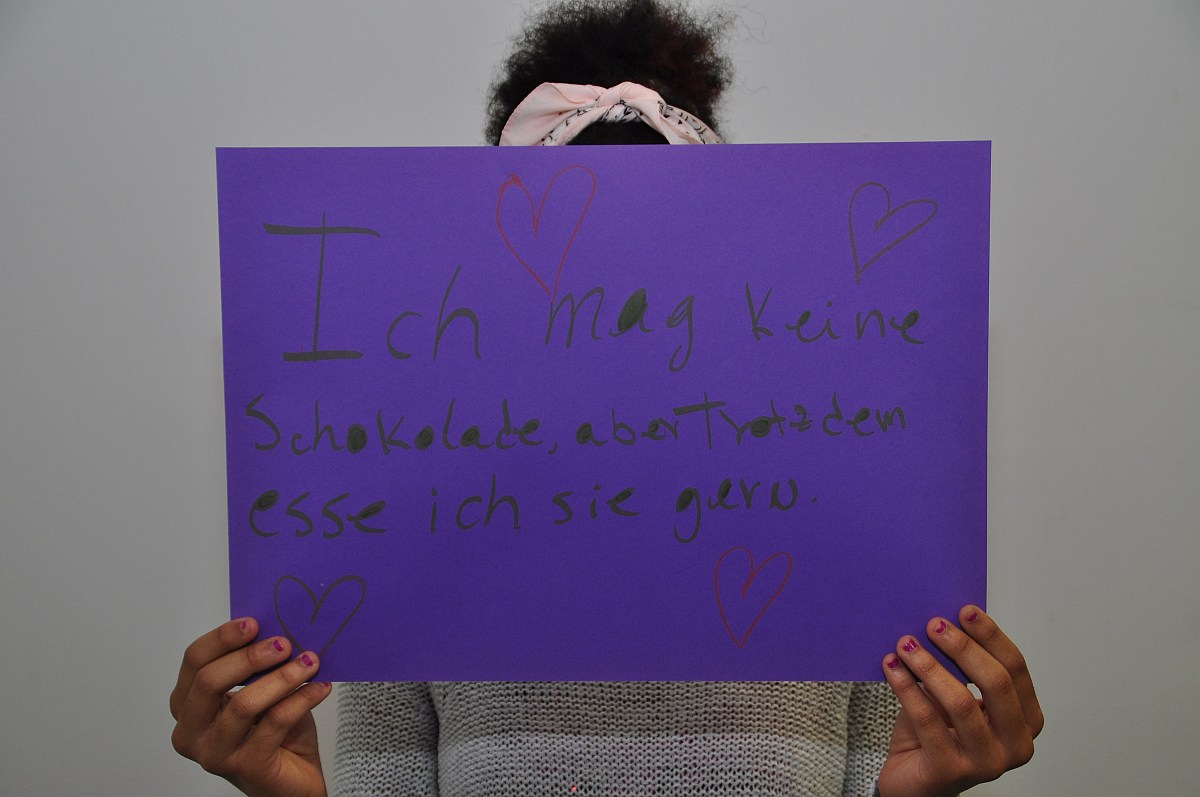 Ich mag keine
Schokolade, aber Trotzdem
esse ich sie gern.